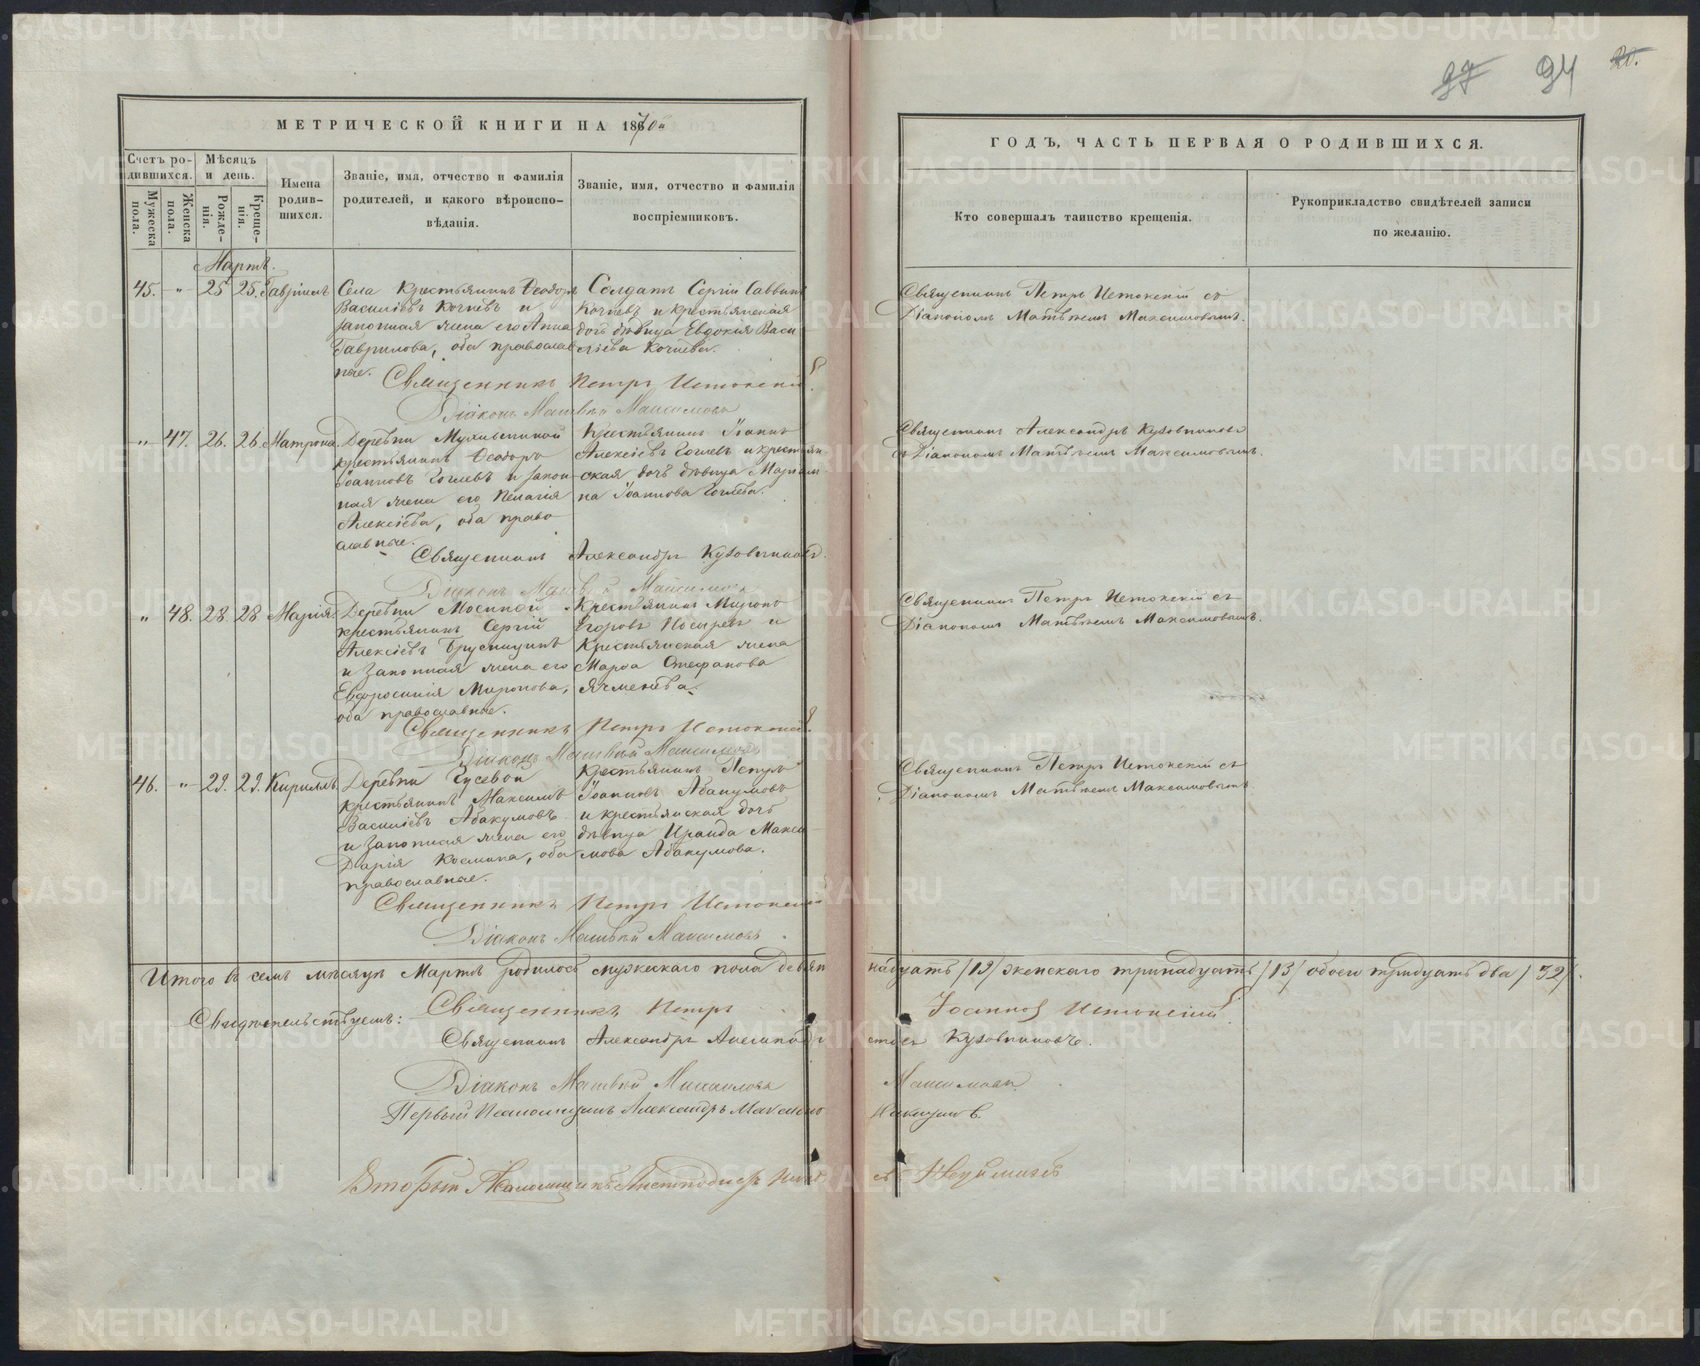 97 94 20.
МЕТРИЧЕСКОЙ КНИГИ НА 1870й
ГОДЪ, ЧАСТЬ ПЕРВАЯ О РОДИВШИХСЯ.
Счетъ родившихся.
Мужеска пола.
Женска пола.
Мѣсяцъ и день.
Рожденія.
Крещенія.
Имена родившихся.
Званіе, имя, отчество и фамилія родителей, и какого вѣроисповѣданія.
Званіе, имя, отчество и фамилія воспріемниковъ.
Кто совершалъ таинство крещенія.
Рукоприкладство свидѣтелей записи по желанію.
Мартъ.
45. " 25 25. Гавріилъ
Села Крестьянинъ Ѳеодоръ
Василіевъ Кочневъ и
законная жена его Анна
Гаврилова, оба православ
ные.
Солдатъ Сергій Саввинъ
Кочневъ и крестьянская
дочь дѣвица Евдокія Васи
лева Кочнева.
Священникъ Петръ Истокскій съ
Діакономъ Матвѣемъ Максимовымъ.
Священникъ Петръ Истокскій
Діаконъ Матвѣй Максимовъ
" 47. 26. 26. Матрона
Деревни
крестьянинъ Ѳеодоръ
Іоанновъ и закон
ная жена его Пелагія
Алексіева, оба право
славные.
Крестьянинъ Іоаннъ
Алексіевъ и крестьян
ская дочь дѣвица
на Іоаннова
Священникъ Александръ Кузовниковъ
съ Діакономъ Матвѣемъ Максимовымъ.
Священникъ Александръ Кузовниковъ.
Діаконъ Матвѣй Максимовъ
" 48. 28. 28 Марія.
Деревни Мосиной
крестьянинъ Сергій
Алексіевъ Брусницынъ
и Законная жена его
Евфросинія Миронова,
оба православные.
Крестьянинъ Миронъ
Егоровъ и
Крестьянская жена
Марѳа Стефанова
Ячменева.
Священникъ Петръ Истокскій съ
Діакономъ Матвѣемъ Максимовымъ.
Священникъ Петръ Истокскій
Діаконъ Матвѣй Максимовъ
46. " 29. 29. Кириллъ
Деревни Гусевой
крестьянинъ Максимъ
Василіевъ Абакумовъ
и Законная жена его
Дарія Космина, оба
православные.
Крестьянинъ Петръ
Іоанновъ Абакумовъ
и крестьянская дочь
дѣвица Ираида Макси
мова Абакумова.
Священникъ Петръ Истокскій съ
Діакономъ Матвѣемъ Максимовымъ
Священникъ Петръ Истокскій
Діаконъ Матвѣй Максимовъ.
Итого въ семъ мѣсяцѣ Мартѣ родилось мужескаго пола девят надцать /19/ женскаго тринадцать /13/ обоего тридцать два /32/.
Свидѣтельствуемъ: Священникъ Петръ Іоанновъ Истокскій
Священникъ Александръ Кузовниковъ.
Діаконъ Матвѣй Максимовъ
Первый Псаломщикъ Александръ
Второй Псаломщикъ
METRIKI.GASO-URAL.RU